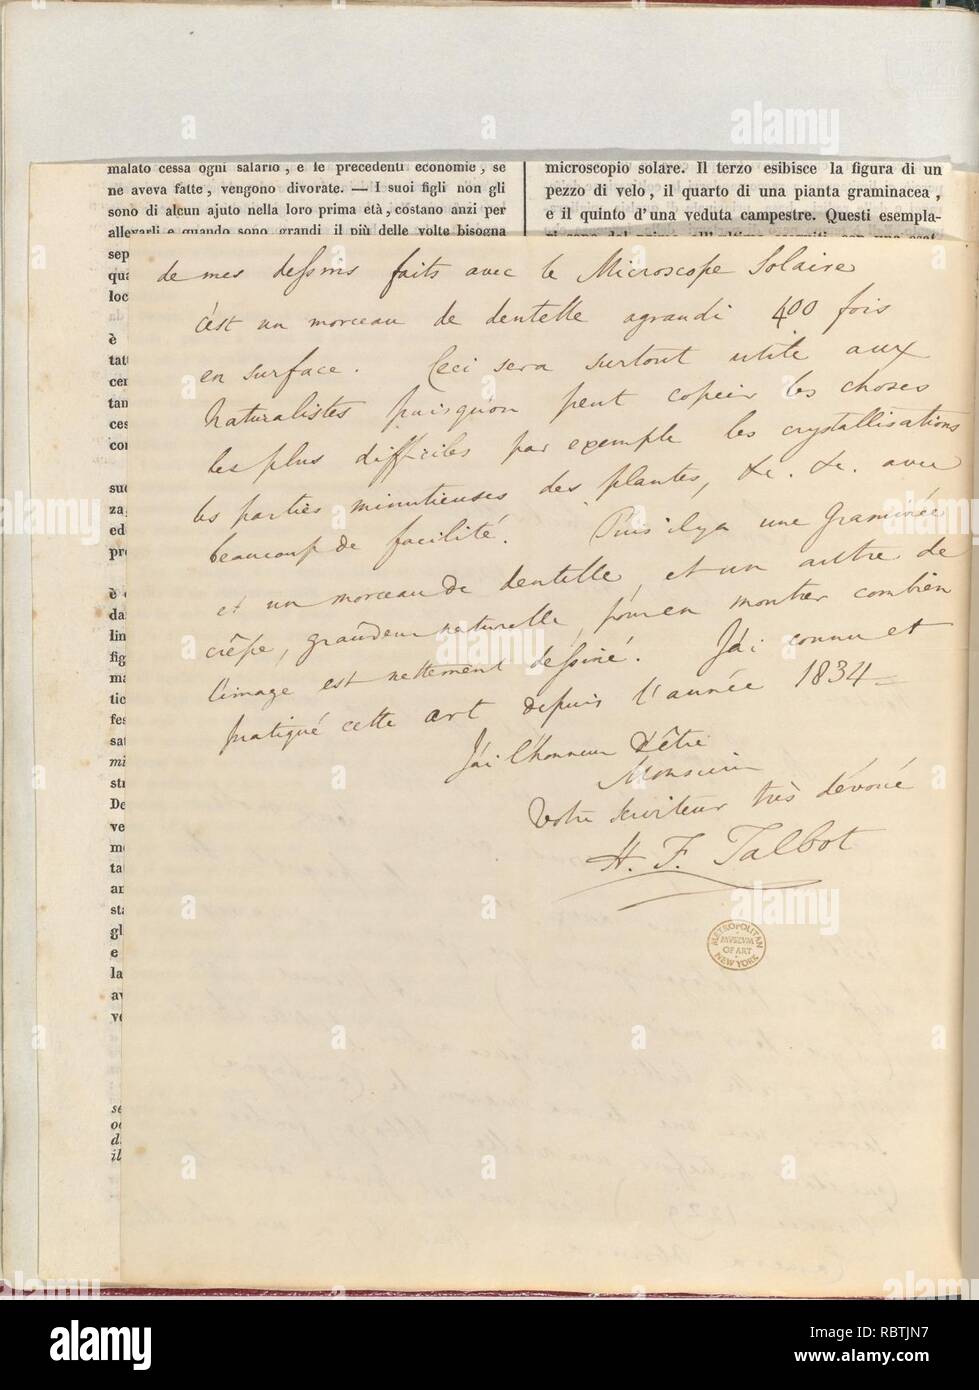 malato cessa ogni salario, e le precedenti economie, se
ne aveva fatte, vengono divorate. — I suoi figli non gli
sono di alcun ajuto nella loro prima età, costano anzi per
allevarli e quando sono grandi il più delle volte bisogna
microscopio solare. Il terzo esibisce la figura di un
pezzo di velo, il quarto di una pianta graminacea,
e il quinto d'una veduta campestre. Questi esempla-
sep
qua
loc
è
tatt
cer
tan
ces
con
suc
za,
ed
pre
è
da
lin
fig
ma
tic
fes
sat
mi
str
De
ve
me
ta
an
sta
gl
e
la
av
ve
se
oc
d.
il
de mes dessins faits avec le Microscope Solaire
c'est un morceau de dentelle agrandi 400 fois
en surface. Ceci sera surtout utile aux
Naturalistes puisqu'on peut copier les choses
les plus difficiles par exemple les crystallisations
les parties minutieuses des plantes, &c. &c. avec
beaucoup de facilité. Puis il y a une Graminée
et un morceau de dentelle, et un autre de
crêpe, grandeur naturelle, pour en montrer combien
l'image est nettement dessiné. J'ai connu et
pratiqué cette art depuis l'année 1834 —
J'ai l'honneur d'être
Monsieur
Votre serviteur très dévoué
H. F. Talbot
METROPOLITAN
MUSEUM
OF ART
NEW YORK
alamy
Image ID: RBTJN7
www.alamy.com